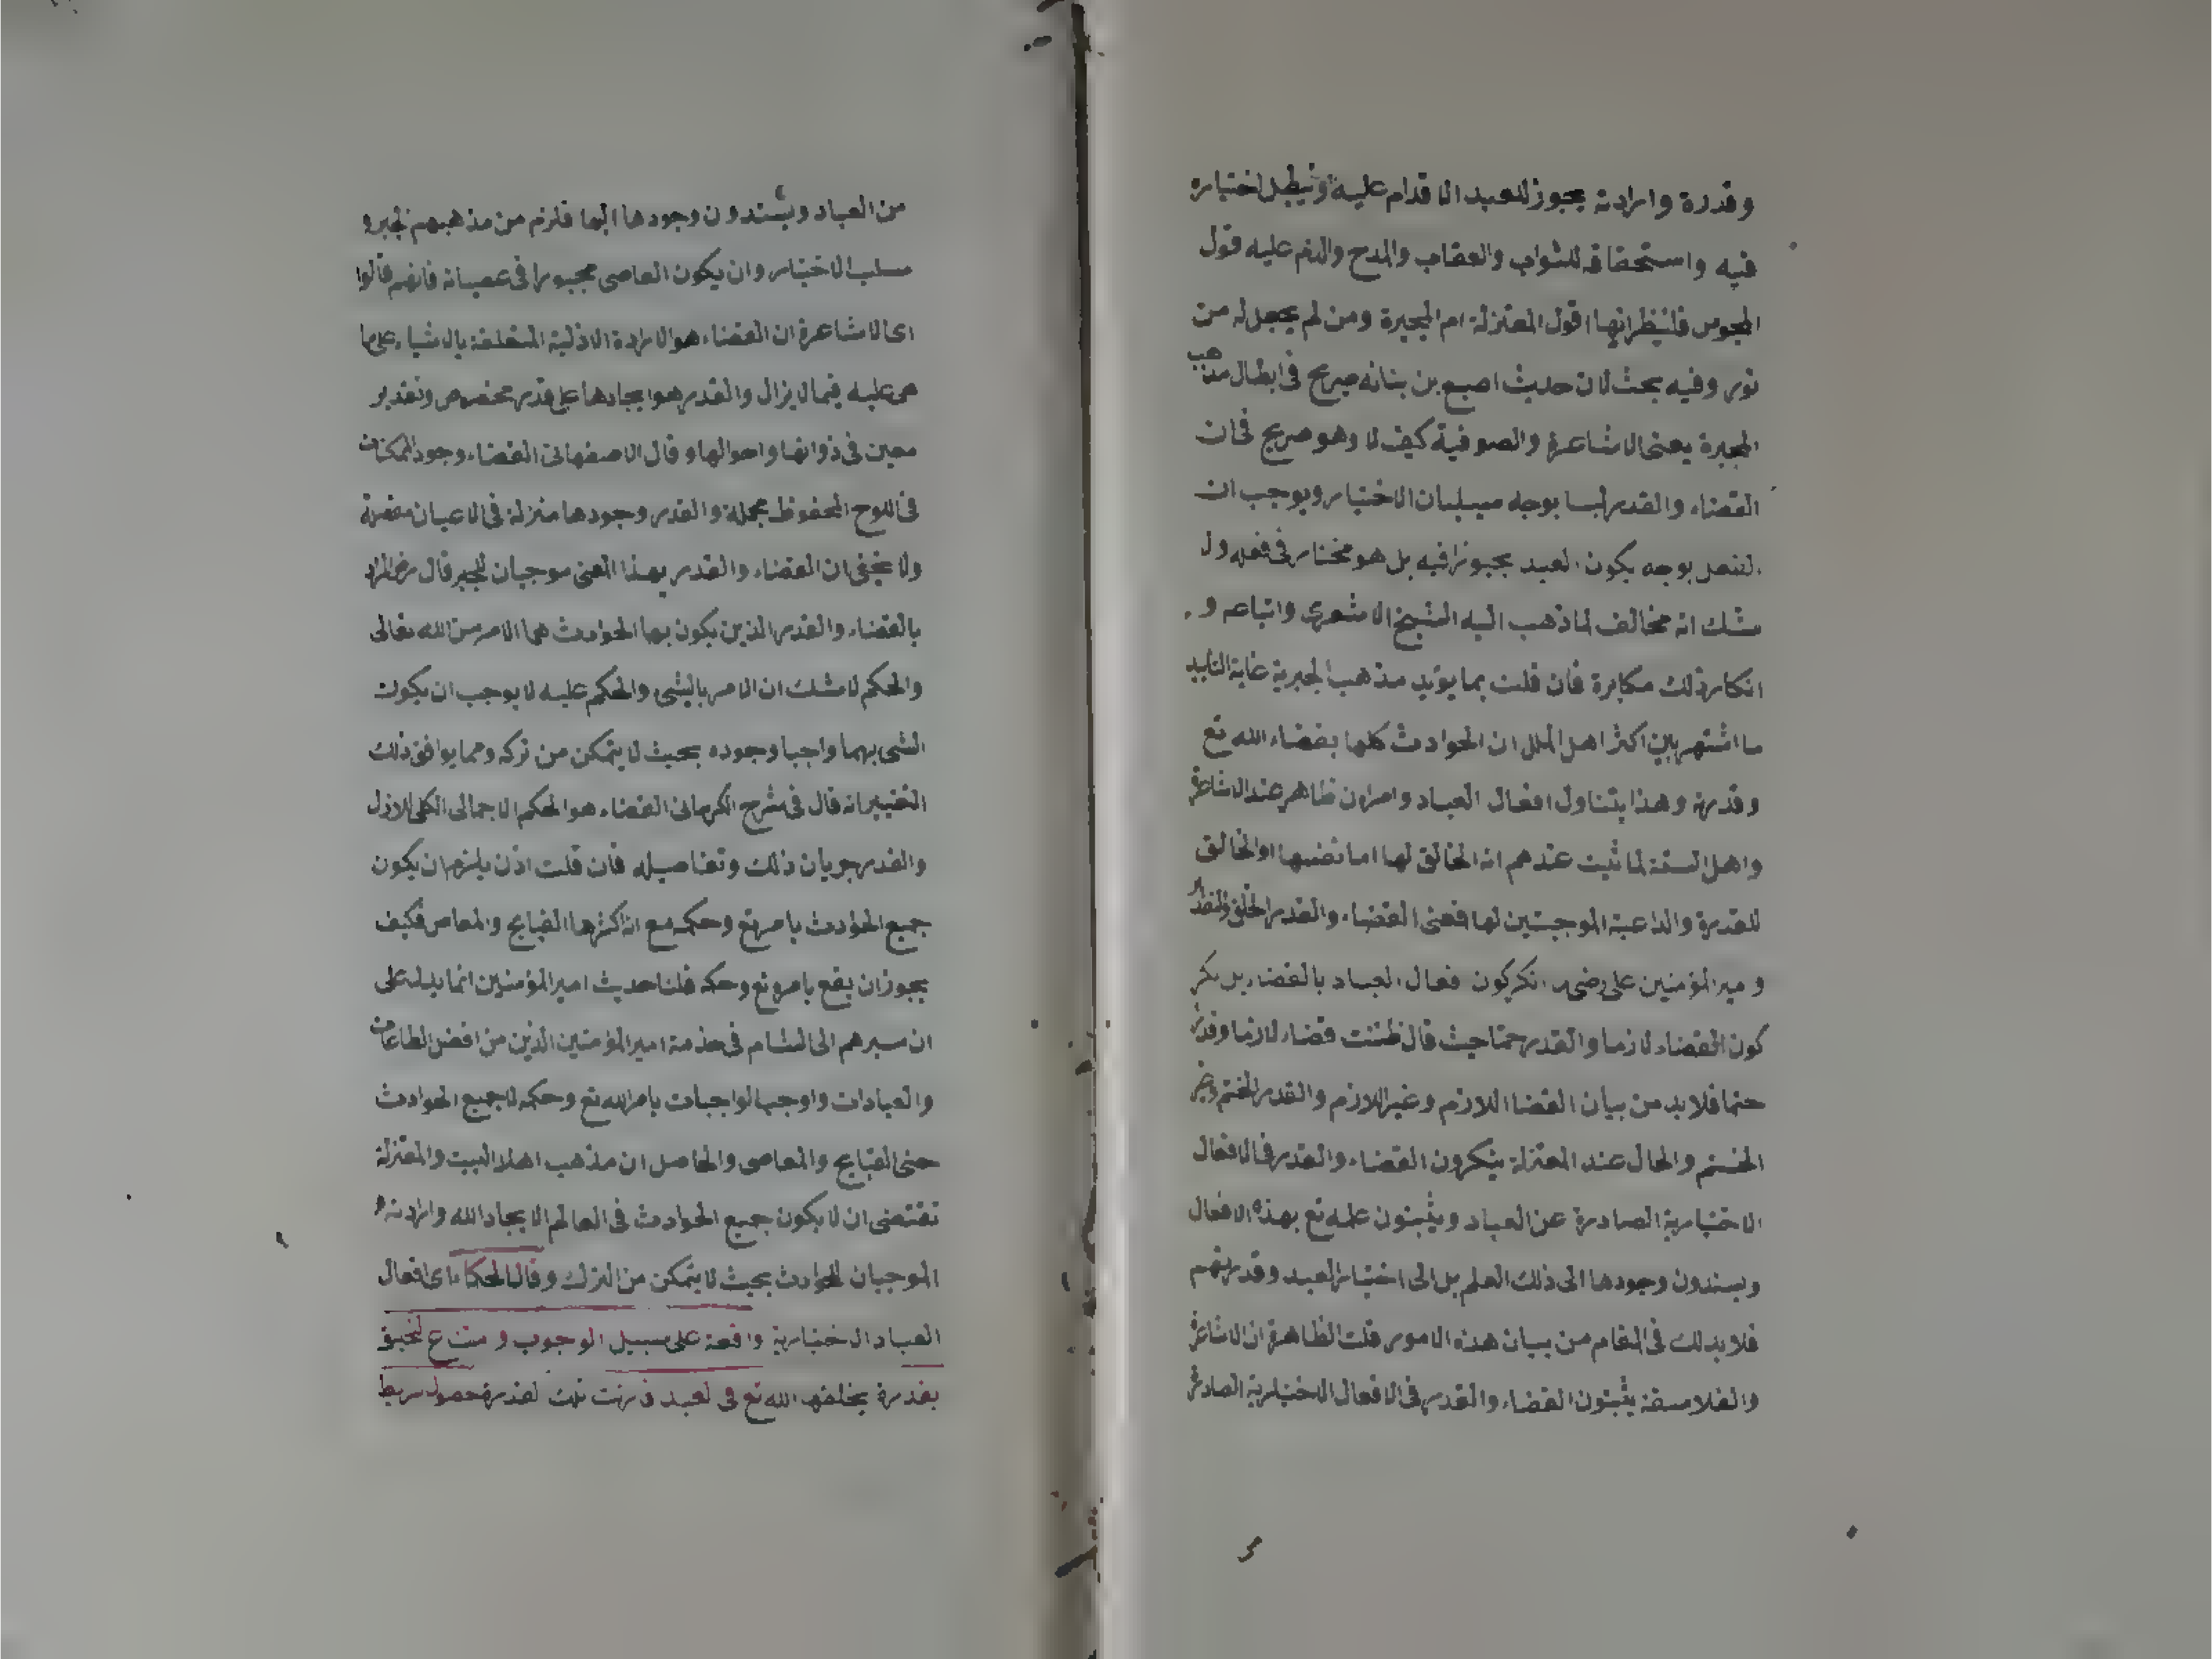 وقدرة وارادته يجوز للعبد الاقدام عليه او تبطل اختياره
فيه واستحقاقه للثواب والعقاب والمدح والذم عليه قول
المجوس فلينظر انها قول المعتزلة ام المجبرة ومن لم يجعل له من
نور وفيه بحث لان حديث اصبغ بن بناته صريح فى ابطال مذهب
المجبرة يعنى الاشاعرة والصوفية كيف لا وهو صريح فى ان
القضاء والقدر ليسا بوجه يسلبان الاختيار ويوجب ان
الفعل بوجه يكون العبد مجبورا فيه بل هو مختار فى فعله ولا
شك انه مخالف لما ذهب اليه الشيخ الاشعرى واتباعه و
انكار ذلك مكابرة فان قلت بما يؤيد مذهب الجبرية غاية التاييد
ما اشتهر بين اكثر اهل الملل ان الحوادث كلها بقضاء الله تع
وقدره وهذا يتناول افعال العباد وامران ظاهر عند الاشاعرة
واهل السنة لما ثبت عندهم انه الخالق لها اما نفسها او الخالق
للقدرة والداعية الموجبتين لها فمعنى القضاء والقدر الخلق والتقدير
و مير المؤمنين على رضى انكر كون فعال العباد بالقضاء بل نكر
كون القضاء لازما والقدر حتما حيث قال ظننت قضاء لازما وقدرا
حتما فلا بد من بيان القضا اللازم وغير اللازم والقدر الختم وغير
الختم والحال عند المعتزلة ينكرون القضاء والقدر فى الافعال
الاختيارية الصادرة عن العباد ويثبتون علمه تع بهذه الافعال
ويسندون وجودها الى ذلك العلم بل الى اختيار العبد وقدرتهم
فلا بد لك فى المقام من بيان هذه الامور قلت الظاهرة ان الاشاعرة
والفلاسفة يثبتون القضاء والقدر فى الافعال الاختيارية الصادرة
من العباد ويسندون وجودها اليها فلزم من مذهبهم الجبر و
سلب الاختيار وان يكون العاصى مجبورا فى عصيانه فانهم قالوا
اى الاشاعرة ان القضاء هو الارادة الازلية المتعلقة بالاشياء على ما
هى عليه فيما لا يزال والقدر هو ايجادها على قدر مخصوص وتقدير
معين فى ذواتها واحوالها وقال الاصفهانى القضاء وجود الممكنات
فى اللوح المحفوظ مجملة والقدر وجودها منزلة فى الاعيان متفرقة
ولا يخفى ان القضاء والقدر بهذا المعنى موجبان للجبر قال المراد
بالقضاء والقدر الذين يكون بها الحوادث هى الامر من الله تعالى
والحكم لا شك ان الامر بالشى والحكم عليه لا يوجب ان يكون
الشى بهما واجبا وجوده بحيث لا يتمكن من تركه ومما يوافق ذلك
التفسير انه قال فى شرح الكرمانى القضاء هو الحكم الاجمالى الكلى للازل
والقدر جريان ذلك وتفاصيله فان قلت اذن يلزم ان يكون
جميع الحوادث بامره تع وحكمه مع ان اكثرها القبايح والمعاص فكيف
يجوز ان يقع بامره تع وحكمه قلنا حديث امير المؤمنين انما يدل على
ان سيرهم الى الشام فى خدمة امير المؤمنين الذين من افضل الطاعات
والعبادات واوجب الواجبات بامر الله تع وحكمه لا جميع الحوادث
حتى القبايح والمعاصى والحاصل ان مذهب اهل البيت والمعتزلة
تقتضى ان لا يكون جميع الحوادث فى العالم الا بجاد الله وارادته
الموجبان للحوادث بحيث لا يتمكن من الترك وقال الحكماء اى افعال
العباد الاختيارية واقعة على سبيل الوجوب و متناع لتخلف
بقدرة يخلقها الله تع فى لعبد ذ رنت تلك لقدرة حصول